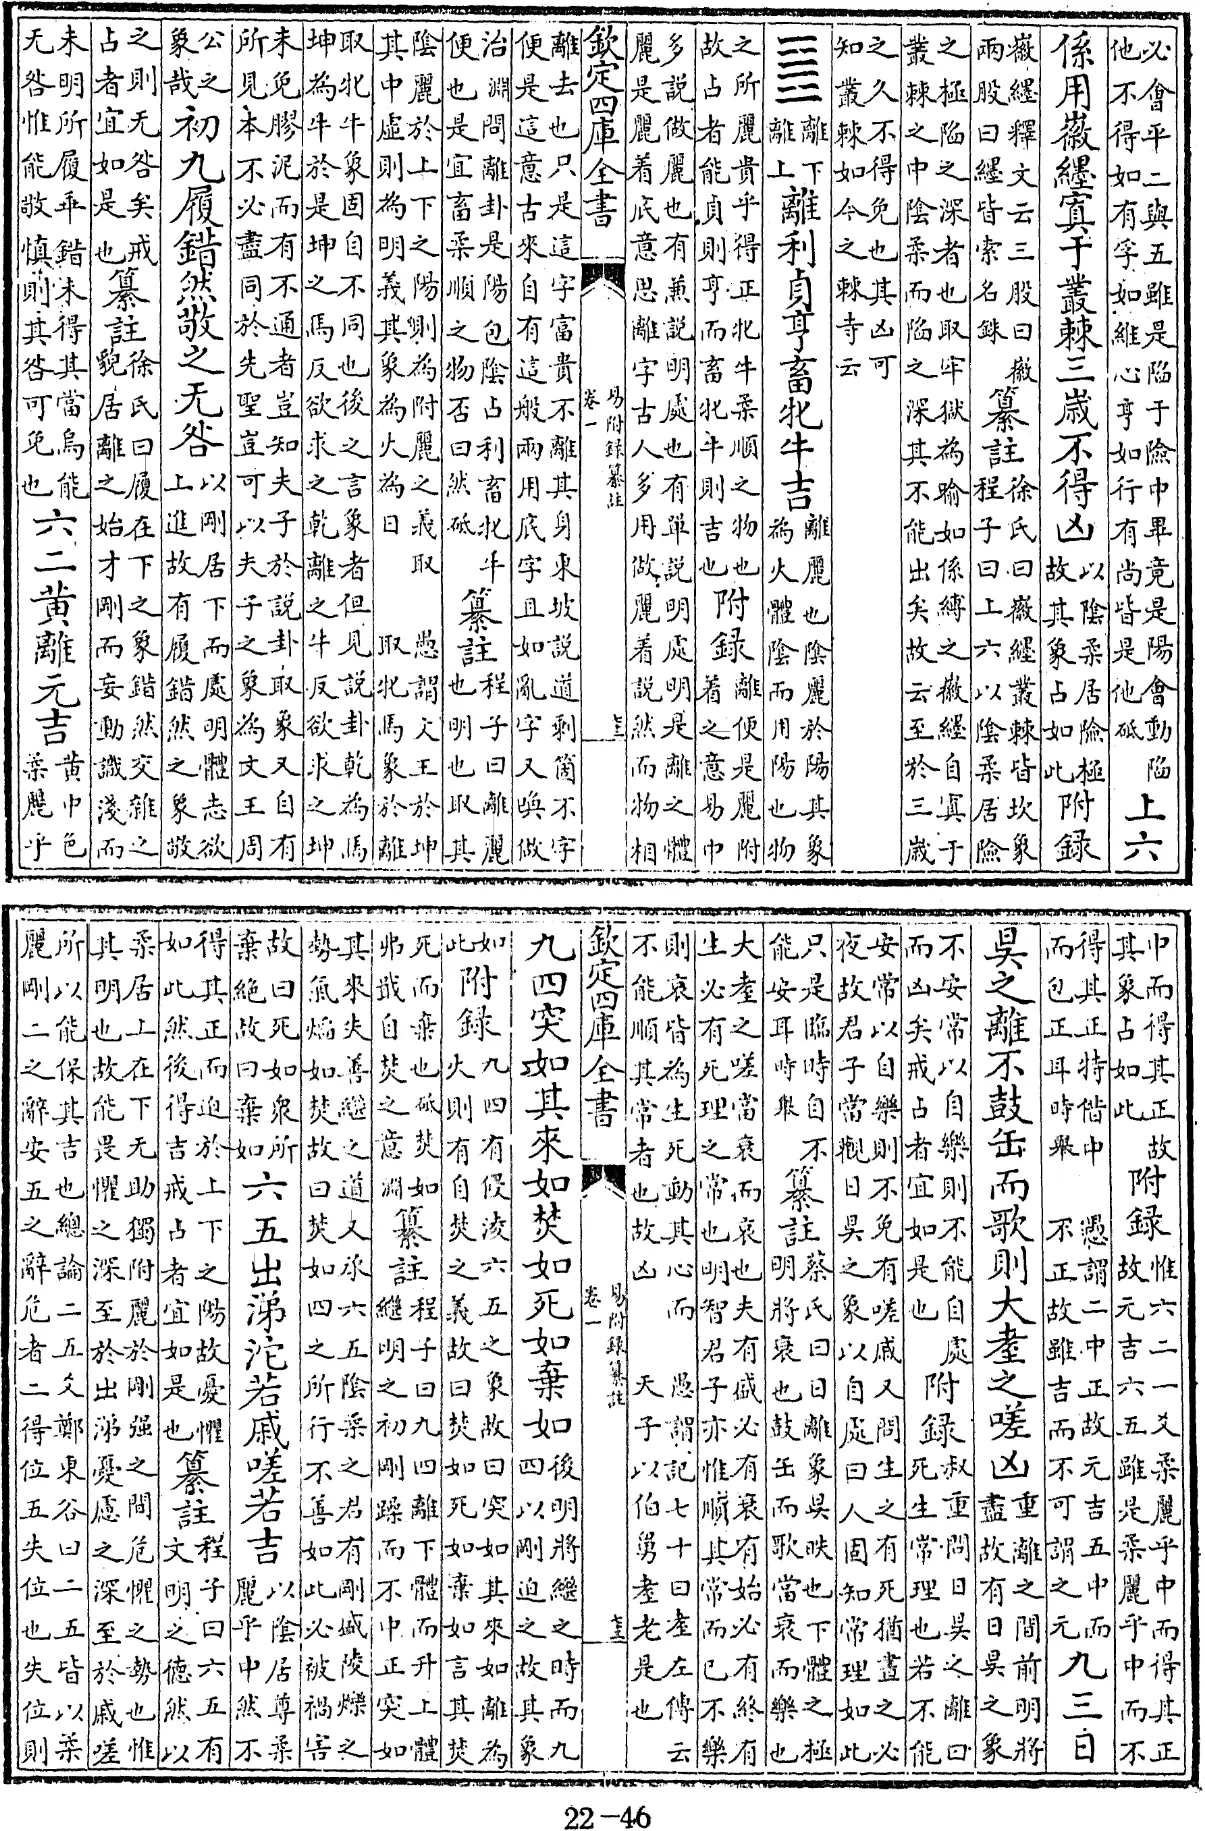 必會平二與五雖是陷于險中畢竟是陽會動陷
他不得如有孚如維心亨如行有尚皆是他砥
上六
係用徽纆寘于叢棘三歲不得凶
以陰柔居險極
故其象占如此
附録
徽纆釋文云三股曰徽
兩股曰纆皆索名銖
纂註
徐氏曰徽纆叢棘皆坎象
程子曰上六以陰柔居險
之極陷之深者也取牢獄為喻如係縛之徽纆自寘于
叢棘之中陰柔而陷之深其不能出矣故云至於三歲
之久不得免也其凶可
知叢棘如今之棘寺云
䷝
離下
離上
離利貞亨畜牝牛吉
離麗也陰麗於陽其象
為火體陰而用陽也物
之所麗貴乎得正牝牛柔順之物也
故占者能貞則亨而畜牝牛則吉也
附録
離便是麗附
着之意易中
多説做麗也有兼説明處也有单説明處明是離之體
麗是麗着底意思離字古人多用做麗着説然而物相
欽定四庫全書
易附録纂註
卷一
離去也只是這字富貴不離其身東坡説道剩箇不字
便是這意古來自有這般兩用底字且如亂字又喚做
治淵問離卦是陽包陰占利畜牝牛
便也是宜畜柔順之物否曰然砥
纂註
程子曰離麗
也明也取其
陰麗於上下之陽則為附麗之義取
其中虛則為明義其象為火為日
愚謂文王於坤
取牝馬象於離
取牝牛象固自不同也後之言象者但見説卦乾為馬
坤為牛於是坤之馬反欲求之乾離之牛反欲求之坤
未免膠泥而有不通者豈知夫子於説卦取象又自有
所見本不必盡同於先聖豈可以夫子之象為文王周
公之
象哉
初九履錯然敬之无咎
以剛居下而處明體志欲
上進故有履錯然之象敬
之則无咎矣戒
占者宜如是也
纂註
徐氏曰履在下之象錯然交雜之
貌居離之始才剛而妄動識淺而
未明所履乖錯未得其當烏能
无咎惟能敬慎則其咎可免也
六二黄離元吉
黄中色
柔麗乎
中而得其正故
其象占如此
附録
惟六二一爻柔麗乎中而得其正
故元吉六五雖是柔麗乎中而不
得其正特借中
而包正耳時舉
愚謂二中正故元吉五中而
不正故雖吉而不可謂之元
九三日
昃之離不鼓缶而歌則大耋之嗟凶
重離之間前明將
盡故有日昃之象
不安常以自樂則不能自處
而凶矣戒占者宜如是也
附録
叔重問日昃之離曰
死生常理也若不能
安常以自樂則不免有嗟戚又問生之有死猶晝之必
夜故君子當觀日昃之象以自處曰人固知常理如此
只是臨時自不
能安耳時舉
纂註
蔡氏曰日離象昃昳也下體之極
明將衰也鼓缶而歌當衰而樂也
大耋之嗟當衰而哀也夫有盛必有衰有始必有終有
生必有死理之常也明智君子亦惟順其常而已不樂
則哀皆為生死動其心而
不能順其常者也故凶
愚謂記七十曰耋左傳云
天子以伯舅耋老是也
欽定四庫全書
易附録纂註
卷一
九四突如其來如焚如死如棄如
後明將繼之時而九
四以剛迫之故其象
如
此
附録
九四有侵淩六五之象故曰突如其來如離為
火則有自焚之義故曰焚如死如棄如言其焚
死而棄也砥焚如
弗戢自焚之意淵
纂註
程子曰九四離下體而升上體
繼明之初剛躁而不中正突如
其來失善繼之道又承六五陰柔之君有剛盛陵爍之
勢氣燄如焚故曰焚如四之所行不善如此必被禍害
故曰死如衆所
棄絶故曰棄如
六五出涕沱若戚嗟若吉
以陰居尊柔
麗乎中然不
得其正而迫於上下之陽故憂懼
如此然後得吉戒占者宜如是也
纂註
程子曰六五有
文明之德然以
柔居上在下无助獨附麗於剛强之間危懼之勢也惟
其明也故能畏懼之深至於出涕憂慮之深至於戚嗟
所以能保其吉也總論二五爻鄭東谷曰二五皆以柔
麗剛二之辭安五之辭危者二得位五失位也失位則
22-46